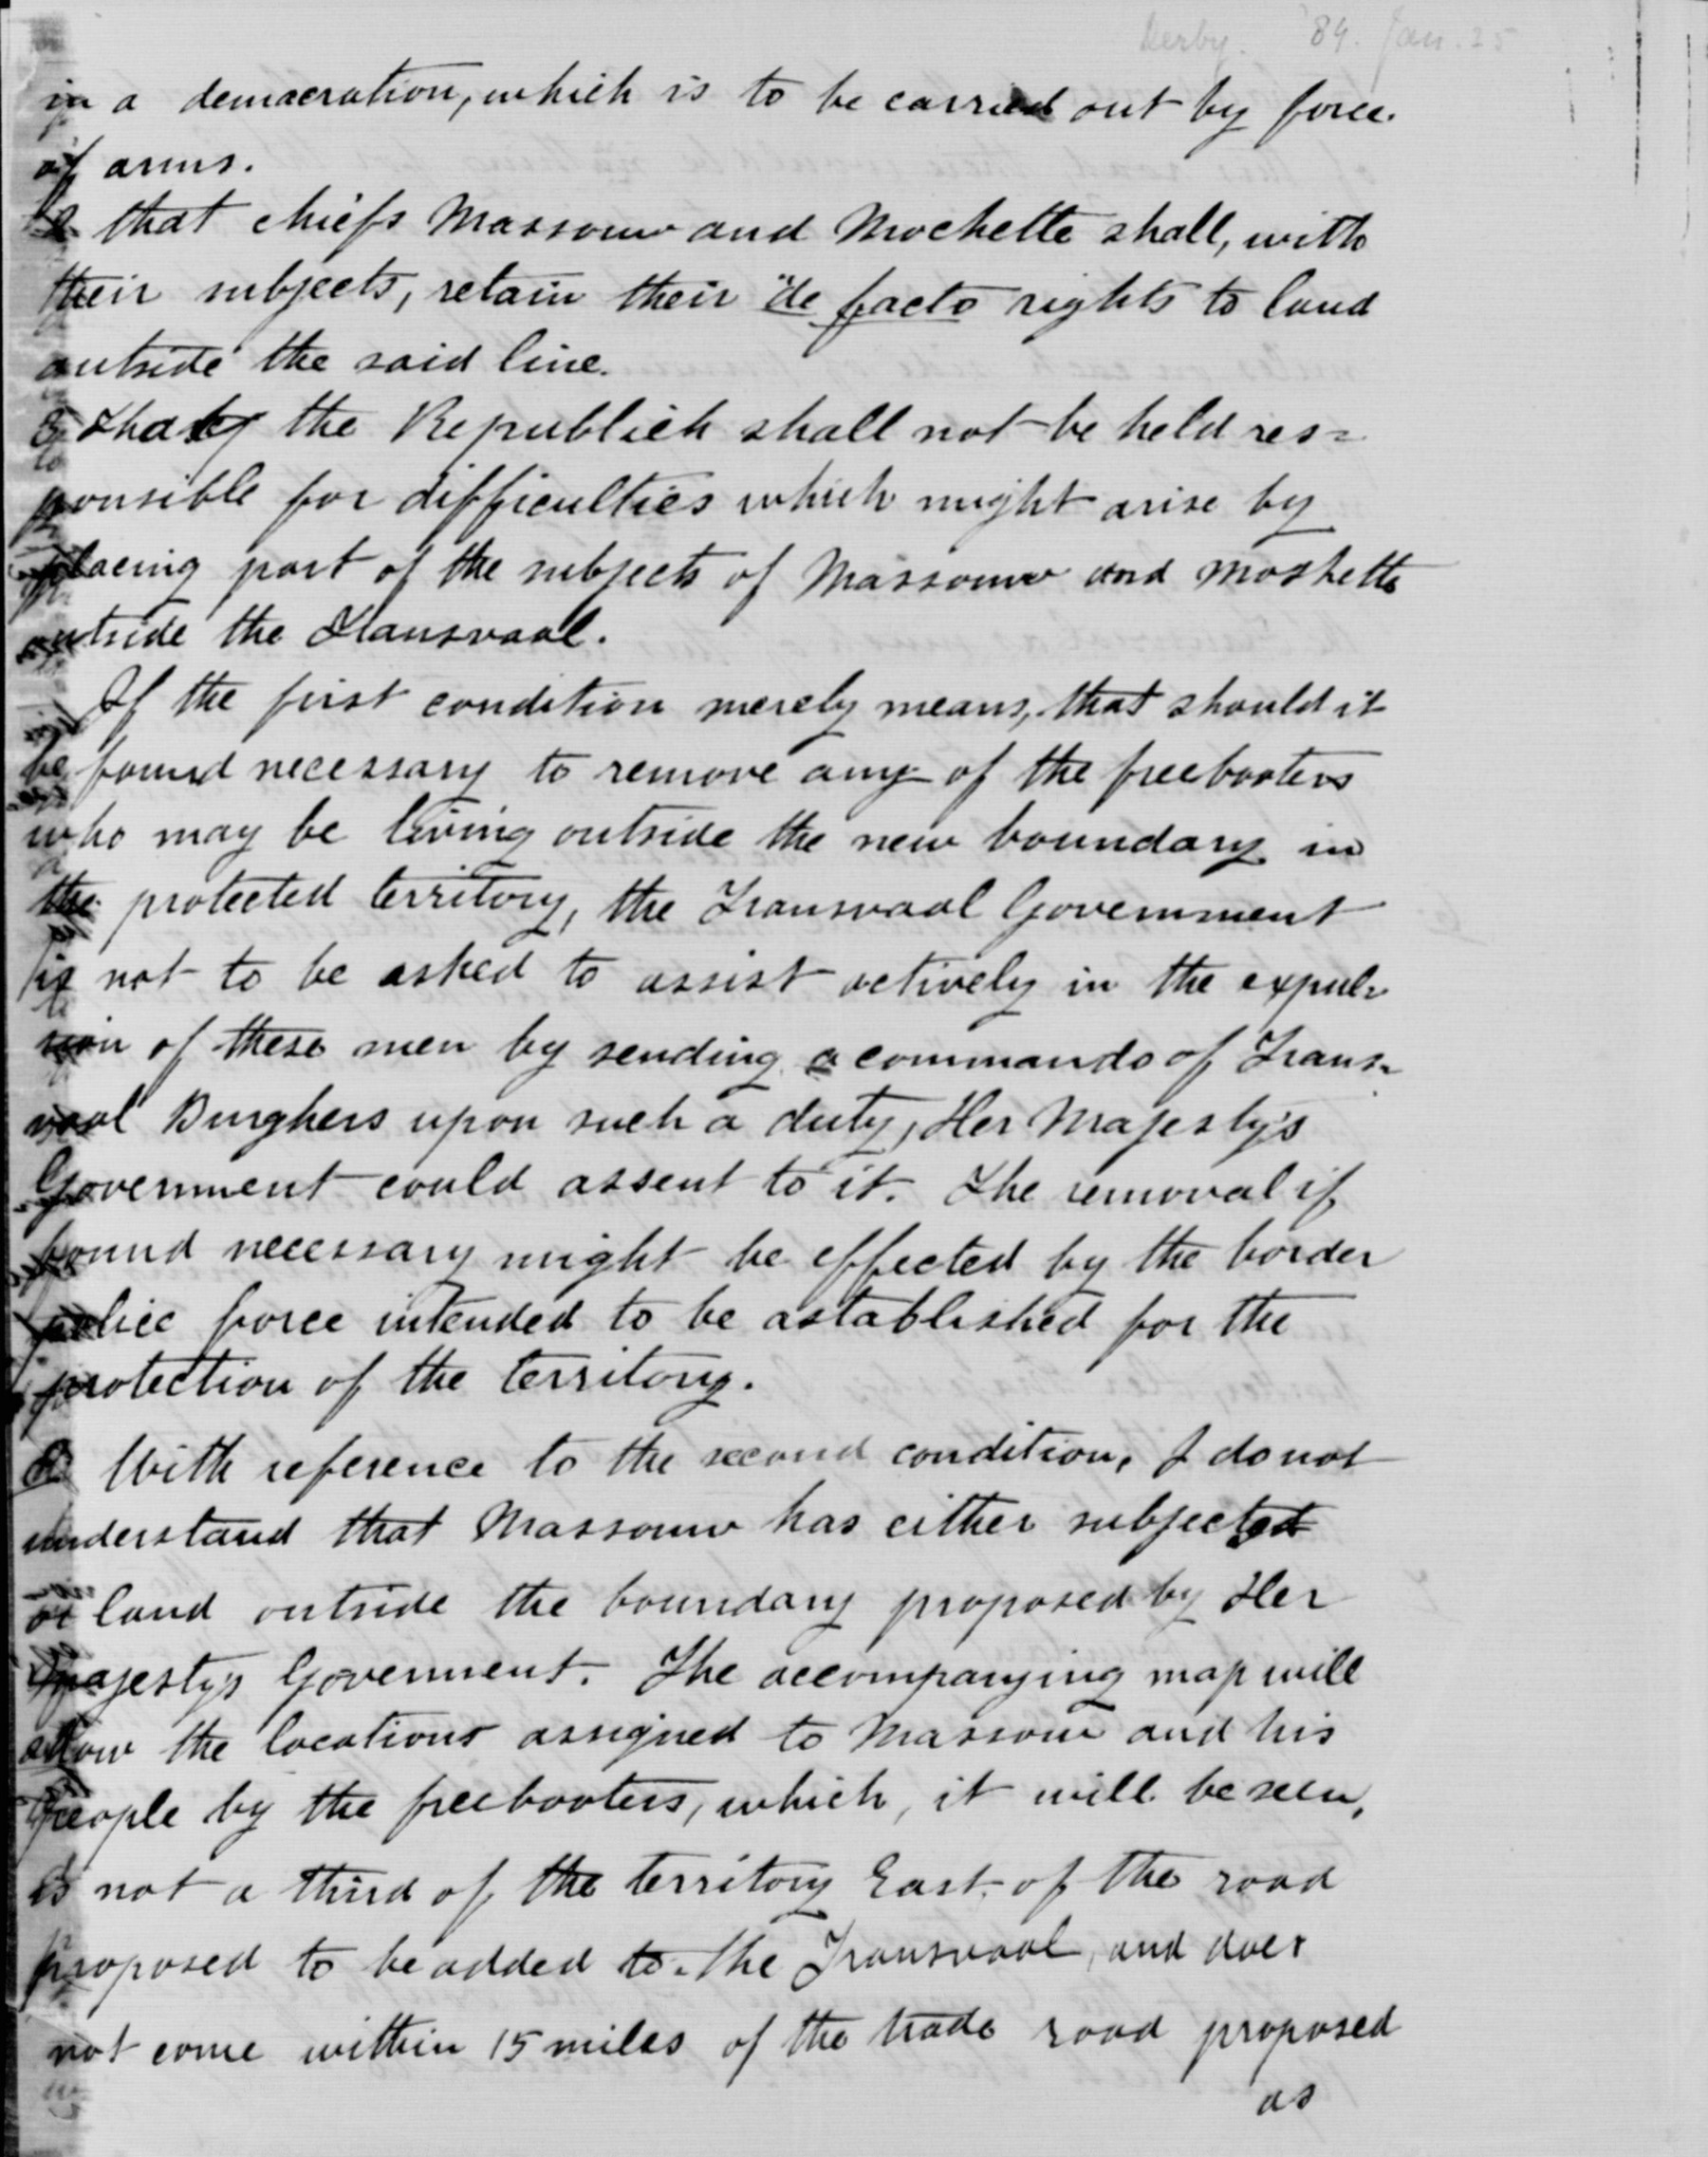 Derby. '84. Jan. 25
in a demacration, which is to be carried out by force.
of arms.
2 that chiefs Massouw and Mochette shall, with
their subjects, retain their "de facto rights to land
outside the said line.
3 that the Republick shall not be held res=
ponsible for difficulties which might arise by
placing part of the subjects of Massouw and Moshette
outside the Transvaal.
If the first condition merely means, that should it
be found necessary to remove any of the freebooters
who may be living outside the new boundary in
the protected territory, the Transvaal Government
is not to be asked to assist actively in the expul=
sion of these men by sending a commando of Trans=
vaal Burghers upon such a duty, Her Majesty's
Government could assent to it. The removal if
found necessary might be effected by the border
police force intended to be astablished for the
protection of the territory.
With reference to the second condition, I do not
understand that Massouw has either subjected
or land outside the boundary proposed by Her
Majesty's Goverment. The accompanying map will
show the locations assigned to Massouw and his
people by the freebooters, which, it will be seen,
is not a third of the territory East of the road
proposed to be added to the Transvaal, and does
not come within 15 miles of the trade road proposed
as